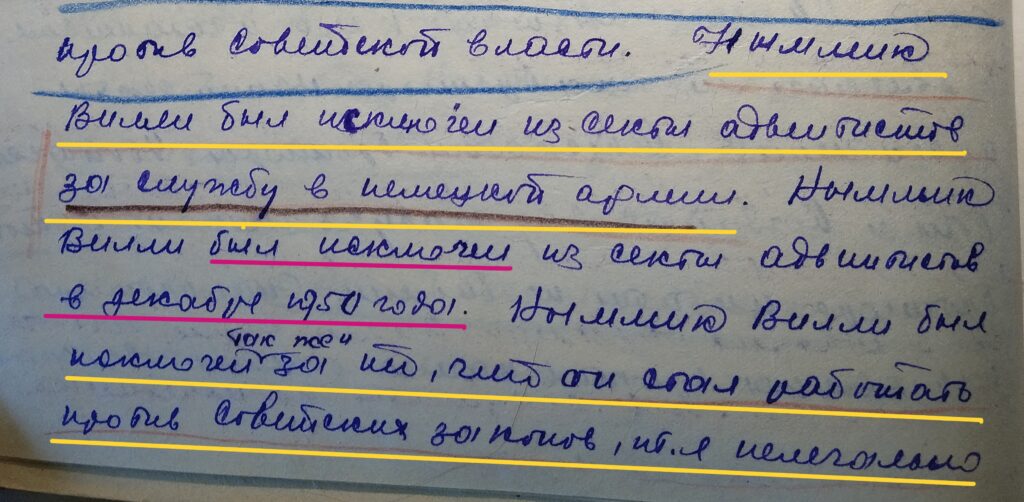 против советской власти. Ныммик
Вилли был исключен из секты адвентистов
за службу в немецкой армии. Ныммик
Вилли был исключен из секты адвентистов
в декабре 1950 года. Ныммик Вилли был
так же и
исключен за то, что он стал работать
против Советских законов, т.я нелегально